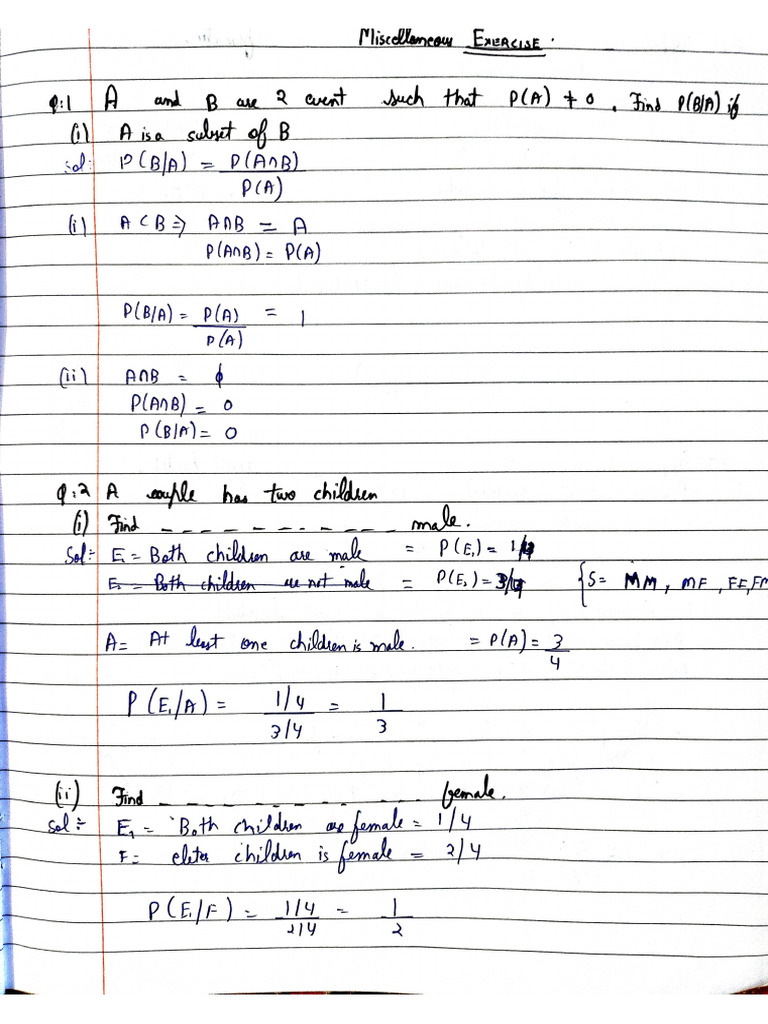 Miscellaneous EXERCISE.
Q:1 A and B are 2 event such that P(A) ≠ 0. Find P(B/A) if
(i) A is a subset of B
Sol: P(B/A) = P(A∩B)
P(A)
(i) A ⊂ B ⇒ A∩B = A
P(A∩B) = P(A)
P(B/A) = P(A) = 1
P(A)
(ii) A∩B = ϕ
P(A∩B) = 0
P(B/A) = 0
Q:2 A couple has two children
(i) Find _ _ _ _ _ _ _ _ _ _ male.
Sol:- E₁ = Both children are male = P(E₁) = 1/4
E₂ = Both children are not male = P(E₂) = 3/4 {S = MM, MF, FF, FM
A = At least one children is male. = P(A) = 3
4
P(E₁/A) = 1/4 = 1
3/4 3
(ii) Find _ _ _ _ _ _ _ _ _ _ female.
Sol:- E₁ = Both children are female = 1/4
F = elster children is female = 2/4
P(E₁/F) = 1/4 = 1
2/4 2